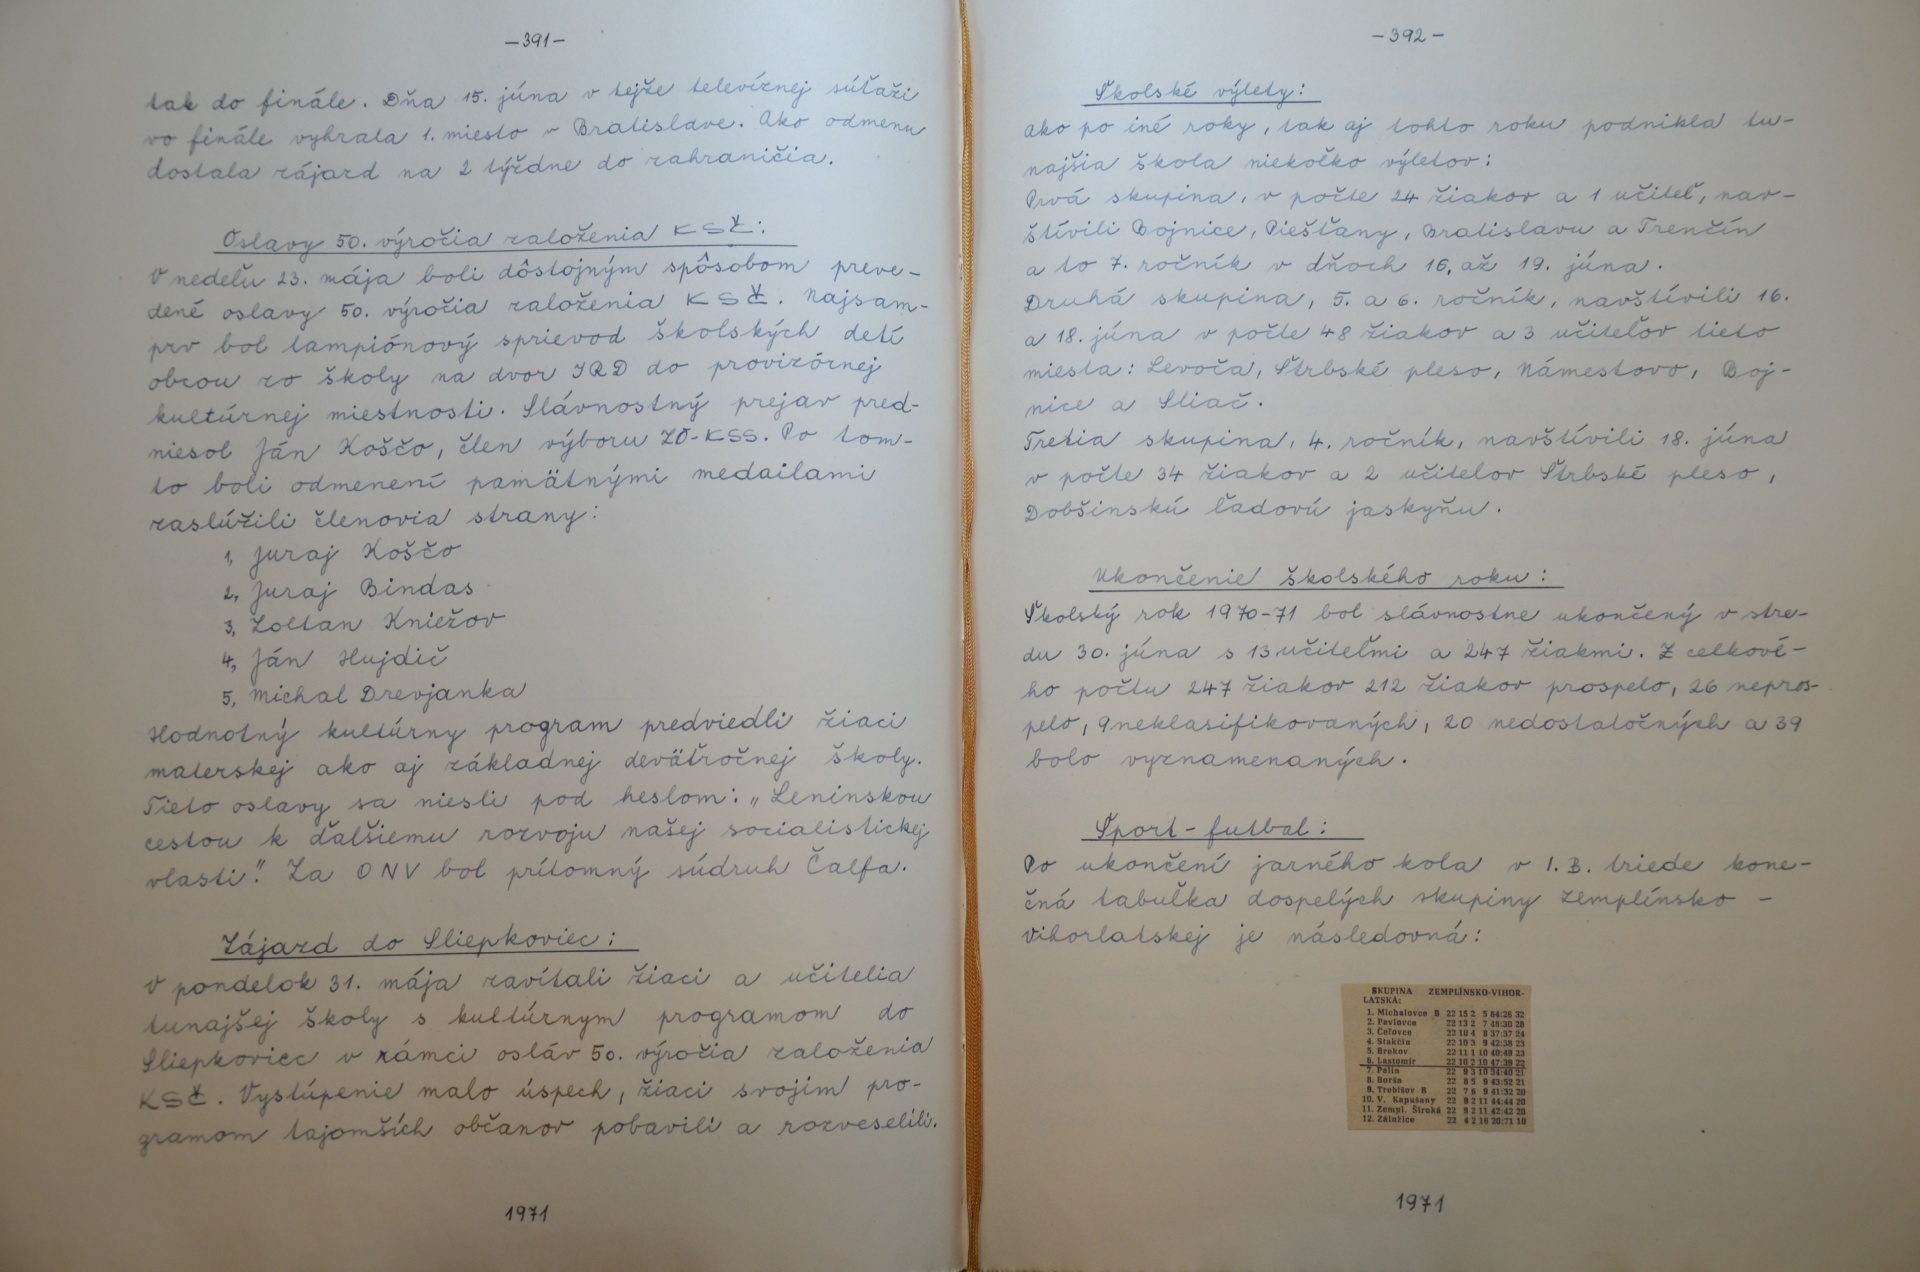 -391-
tak do finále. Dňa 15. júna v tejže televíznej súťaži
vo finále vyhrala 1. miesto v Bratislave. Ako odmenu
dostala zájazd na 2 týždne do zahraničia.
Oslavy 50. výročia založenia KSČ:
V nedeľu 23. mája boli dôstojným spôsobom preve-
dené oslavy 50. výročia založenia KSČ. Najsam-
prv bol lampiónový sprievod školských detí
obcou zo školy na dvor JRD do provizórnej
kultúrnej miestnosti. Slávnostný prejav pred-
niesol Ján Koščo, člen výboru ZO-KSS. Po tom-
to boli odmenení pamätnými medailami
zaslúžili členovia strany:
1, Juraj Koščo
2, Juraj Bindas
3, Zoltan Kniežov
4, Ján Hujdič
5, Michal Drevjanka
Hodnotný kultúrny program predviedli žiaci
materskej ako aj základnej deväťročnej školy.
Tieto oslavy sa niesli pod heslom: „Leninskou
cestou k ďalšiemu rozvoju našej socialistickej
vlasti." Za ONV bol prítomný súdruh Čalfa.
Zájazd do Sliepkoviec:
V pondelok 31. mája zavítali žiaci a učitelia
tunajšej školy s kultúrnym programom do
Sliepkoviec v rámci osláv 50. výročia založenia
KSČ. Vystúpenie malo úspech, žiaci svojim pro-
gramom tajomších občanov pobavili a rozveselili.
1971
-392-
Školské výlety:
Ako po iné roky, tak aj tohto roku podnikla tu-
najšia škola niekoľko výletov:
Prvá skupina, v počte 24 žiakov a 1 učiteľ, nav-
štívili Bojnice, Piešťany, Bratislavu a Trenčín
a to 7. ročník v dňoch 16, až 19. júna.
Druhá skupina, 5. a 6. ročník, navštívili 16.
a 18. júna v počte 48 žiakov a 3 učiteľov tieto
miesta: Levoča, Štrbské pleso, Námestovo, Boj-
nice a Sliač.
Tretia skupina, 4. ročník, navštívili 18. júna
v počte 34 žiakov a 2 učitelov Štrbské pleso,
Dobšinskú ľadovú jaskyňu.
Ukončenie školského roku:
Školský rok 1970-71 bol slávnostne ukončený v stre-
du 30. júna s 13 učiteľmi a 247 žiakmi. Z celkové-
ho počtu 247 žiakov 212 žiakov prospelo, 26 nepros-
pelo, 9 neklasifikovaných, 20 nedostatočných a 39
bolo vyznamenaných.
Šport-futbal:
Po ukončení jarného kola v I. B. triede kone-
čná tabuľka dospelých skupiny zemplínsko-
vihorlatskej je následovná:
SKUPINA ZEMPLÍNSKO-VIHOR-
LATSKÁ:
1. Michalovce B 22 15 2 5 64:26 32
2. Pavlovce 22 13 2 7 46:30 28
3. Čečovce 22 10 4 8 37:37 24
4. Stakčín 22 10 3 9 42:38 23
5. Brekov 22 11 1 10 40:49 23
6. Lastomír 22 10 2 10 47:39 22
7. Palín 22 9 3 10 34:40 21
8. Borša 22 8 5 9 43:52 21
9. Trebišov B 22 7 6 9 41:32 20
10. V. Kapušany 22 9 2 11 44:44 20
11. Zempl. Široká 22 9 2 11 42:42 20
12. Zálužice 22 4 2 16 20:71 10
1971